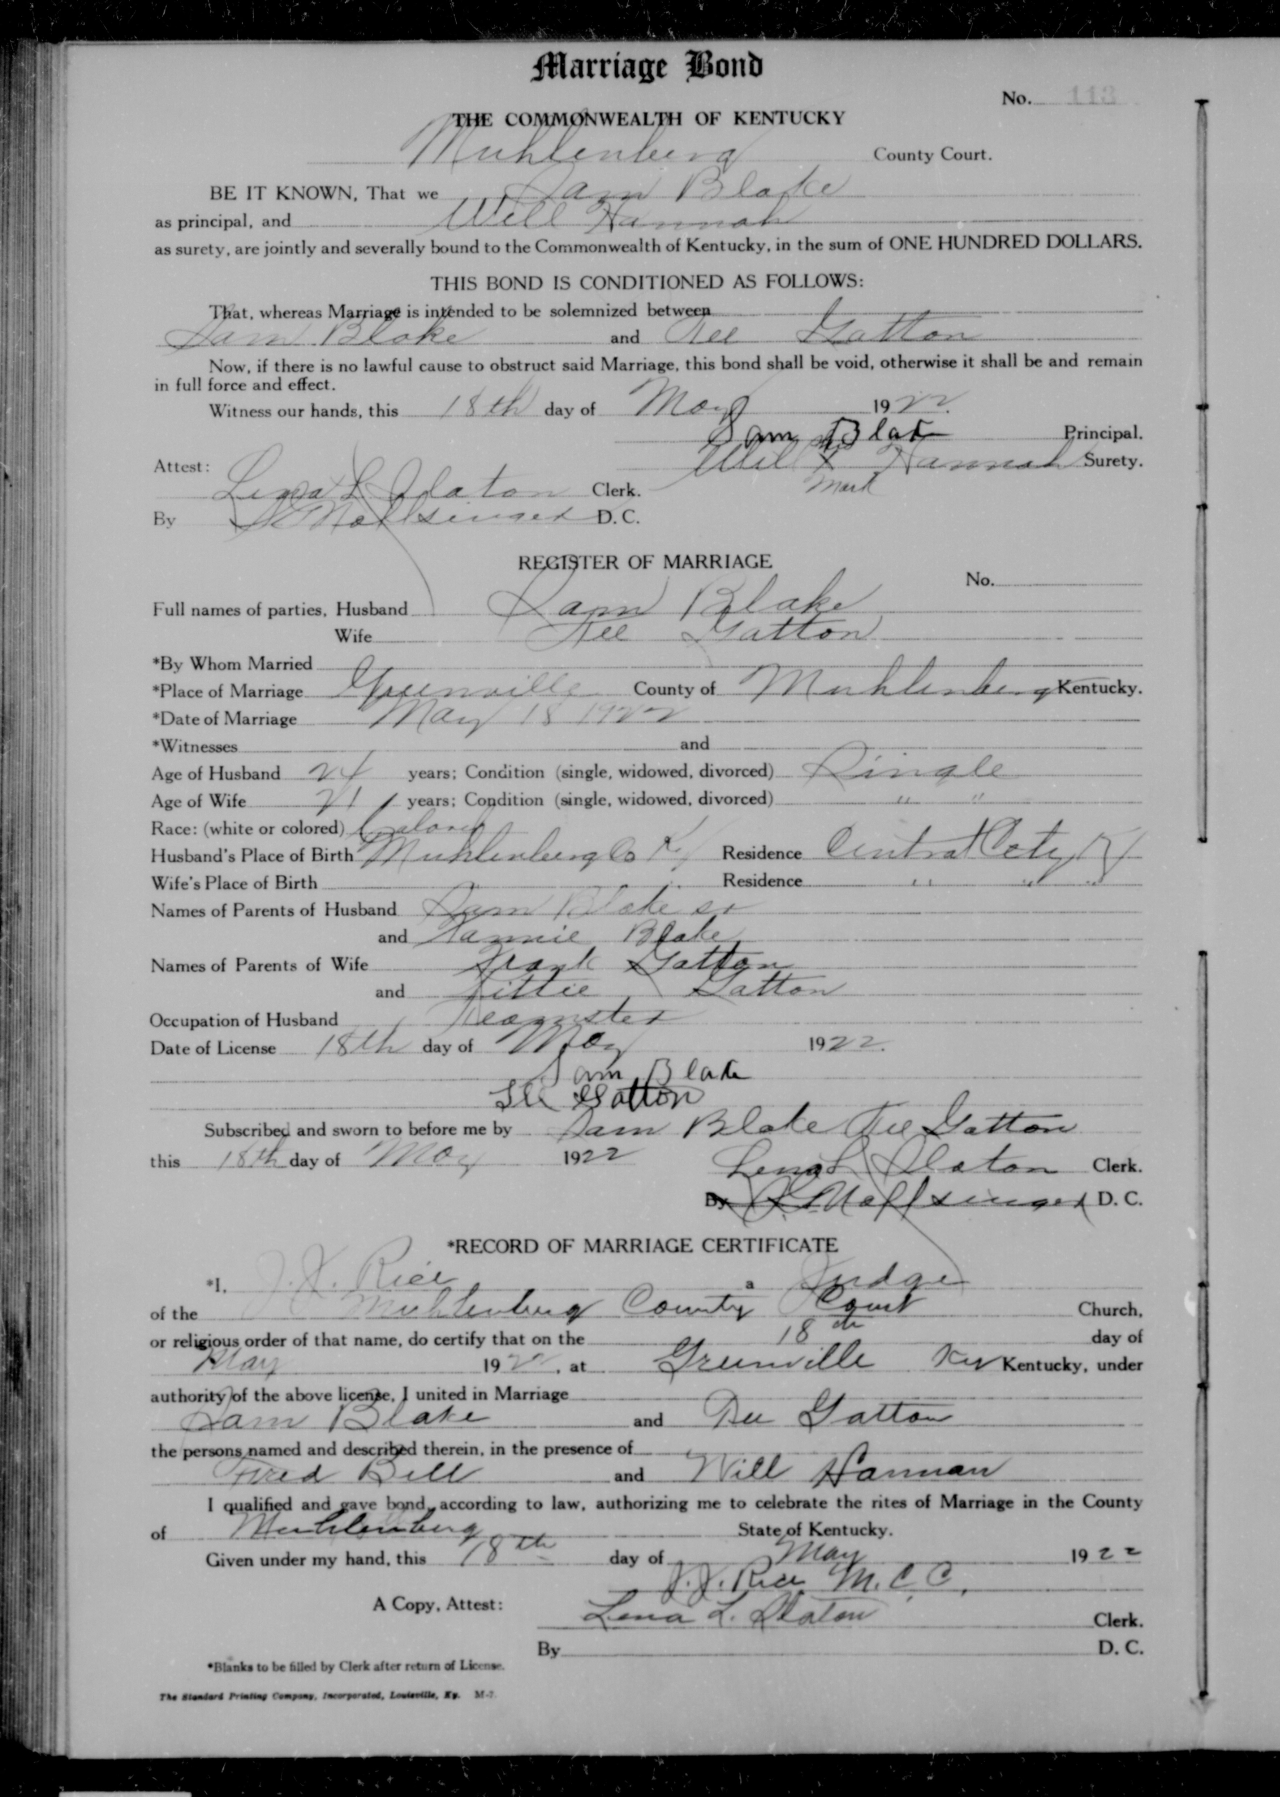 Marriage Bond
No. 113
THE COMMONWEALTH OF KENTUCKY
Muhlenberg County Court.
BE IT KNOWN, That we Sam Blake
as principal, and Will Hannah
as surety, are jointly and severally bound to the Commonwealth of Kentucky, in the sum of ONE HUNDRED DOLLARS.
THIS BOND IS CONDITIONED AS FOLLOWS:
That, whereas Marriage is intended to be solemnized between
Sam Blake and Tee Gatton
Now, if there is no lawful cause to obstruct said Marriage, this bond shall be void, otherwise it shall be and remain
in full force and effect.
Witness our hands, this 18th day of May 1922.
Sam Blak Principal.
Attest: Will X Hannah Surety.
mark
Lena L Slaton Clerk.
By Noffsinger D. C.
REGISTER OF MARRIAGE
No.
Full names of parties, Husband Sam Blake
Wife Tee Gatton
*By Whom Married
*Place of Marriage Greenville County of Muhlenberg Kentucky.
*Date of Marriage May 18 1922
*Witnesses and
Age of Husband 24 years; Condition (single, widowed, divorced) Single
Age of Wife 21 years; Condition (single, widowed, divorced) " "
Race: (white or colored) Colored
Husband's Place of Birth Muhlenberg Co Ky Residence Central City Ky
Wife's Place of Birth " Residence " " "
Names of Parents of Husband Sam Blake sr
and Fannie Blake
Names of Parents of Wife Frank Gatton
and Kittie Gatton
Occupation of Husband Teamster
Date of License 18th day of May 1922.
Sam Blak
Gatton
Subscribed and sworn to before me by Sam Blake Tee Gatton
this 18th day of May 1922
Lena L Slaton Clerk.
By Noffsinger D. C.
*RECORD OF MARRIAGE CERTIFICATE
*I, J. J. Rice a Judge
of the Muhlenberg County Court Church,
or religious order of that name, do certify that on the 18th day of
May 1922, at Greenville Ky Kentucky, under
authority of the above license, I united in Marriage
Sam Blake and Dee Gatton
the persons named and described therein, in the presence of
Fred Bell and Will Hannan
I qualified and gave bond, according to law, authorizing me to celebrate the rites of Marriage in the County
of Muhlenberg State of Kentucky.
Given under my hand, this 18th day of May 1922
J. J. Rice M. C. C.
A Copy, Attest: Lena L. Slaton Clerk.
By D. C.
*Blanks to be filled by Clerk after return of License.
The Standard Printing Company, Incorporated, Louisville, Ky. M-7